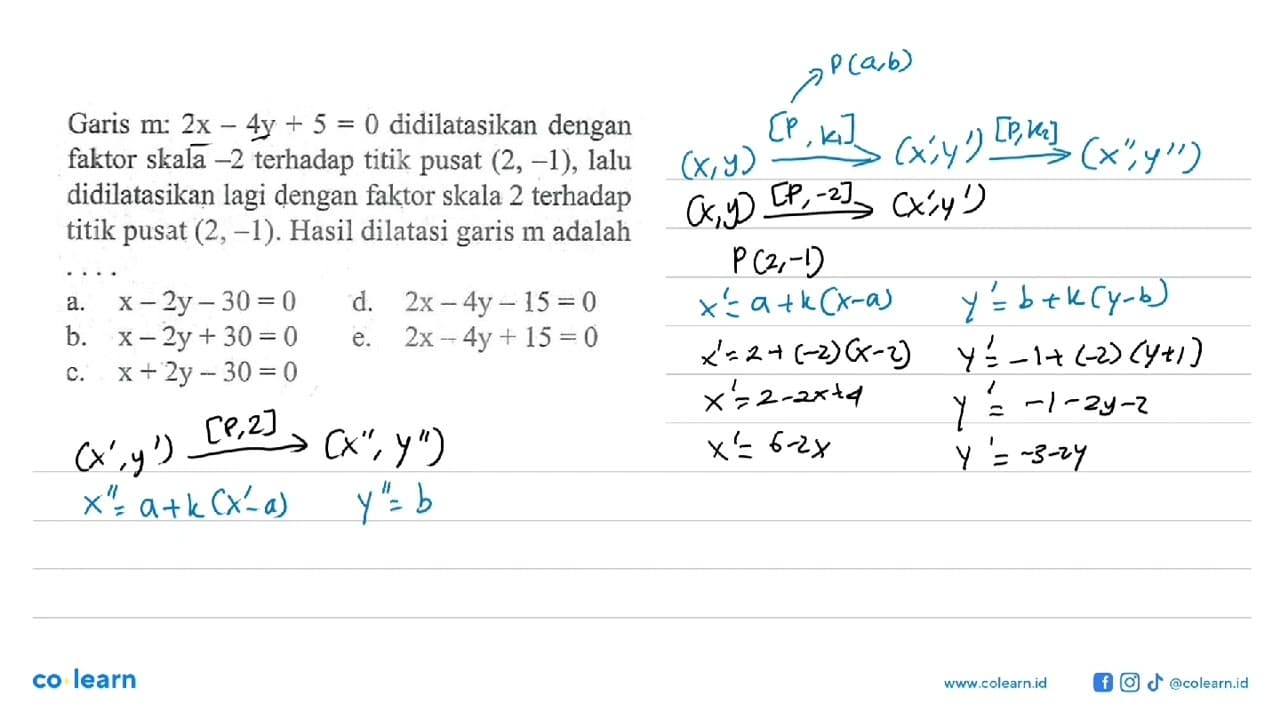 Garis m: 2x – 4y + 5 = 0 didilatasikan dengan
faktor skala –2 terhadap titik pusat (2, –1), lalu
didilatasikan lagi dengan faktor skala 2 terhadap
titik pusat (2, –1). Hasil dilatasi garis m adalah
. . . .
a. x – 2y – 30 = 0 d. 2x – 4y – 15 = 0
b. x – 2y + 30 = 0 e. 2x – 4y + 15 = 0
c. x + 2y – 30 = 0
(x',y') [P,2] → (x'', y'')
x'' = a+k(x'-a) y'' = b
P(a,b)
(x,y) [P, k1] → (x',y') [P,k2] → (x'',y'')
(x,y) [P,-2] → (x',y')
P(2,-1)
x' = a+k(x-a) y' = b+k(y-b)
x' = 2+(-2)(x-2) y' = -1+(-2)(y+1)
x' = 2-2x+4 y' = -1-2y-2
x' = 6-2x y' = -3-2y
co learn
www.colearn.id @colearn.id